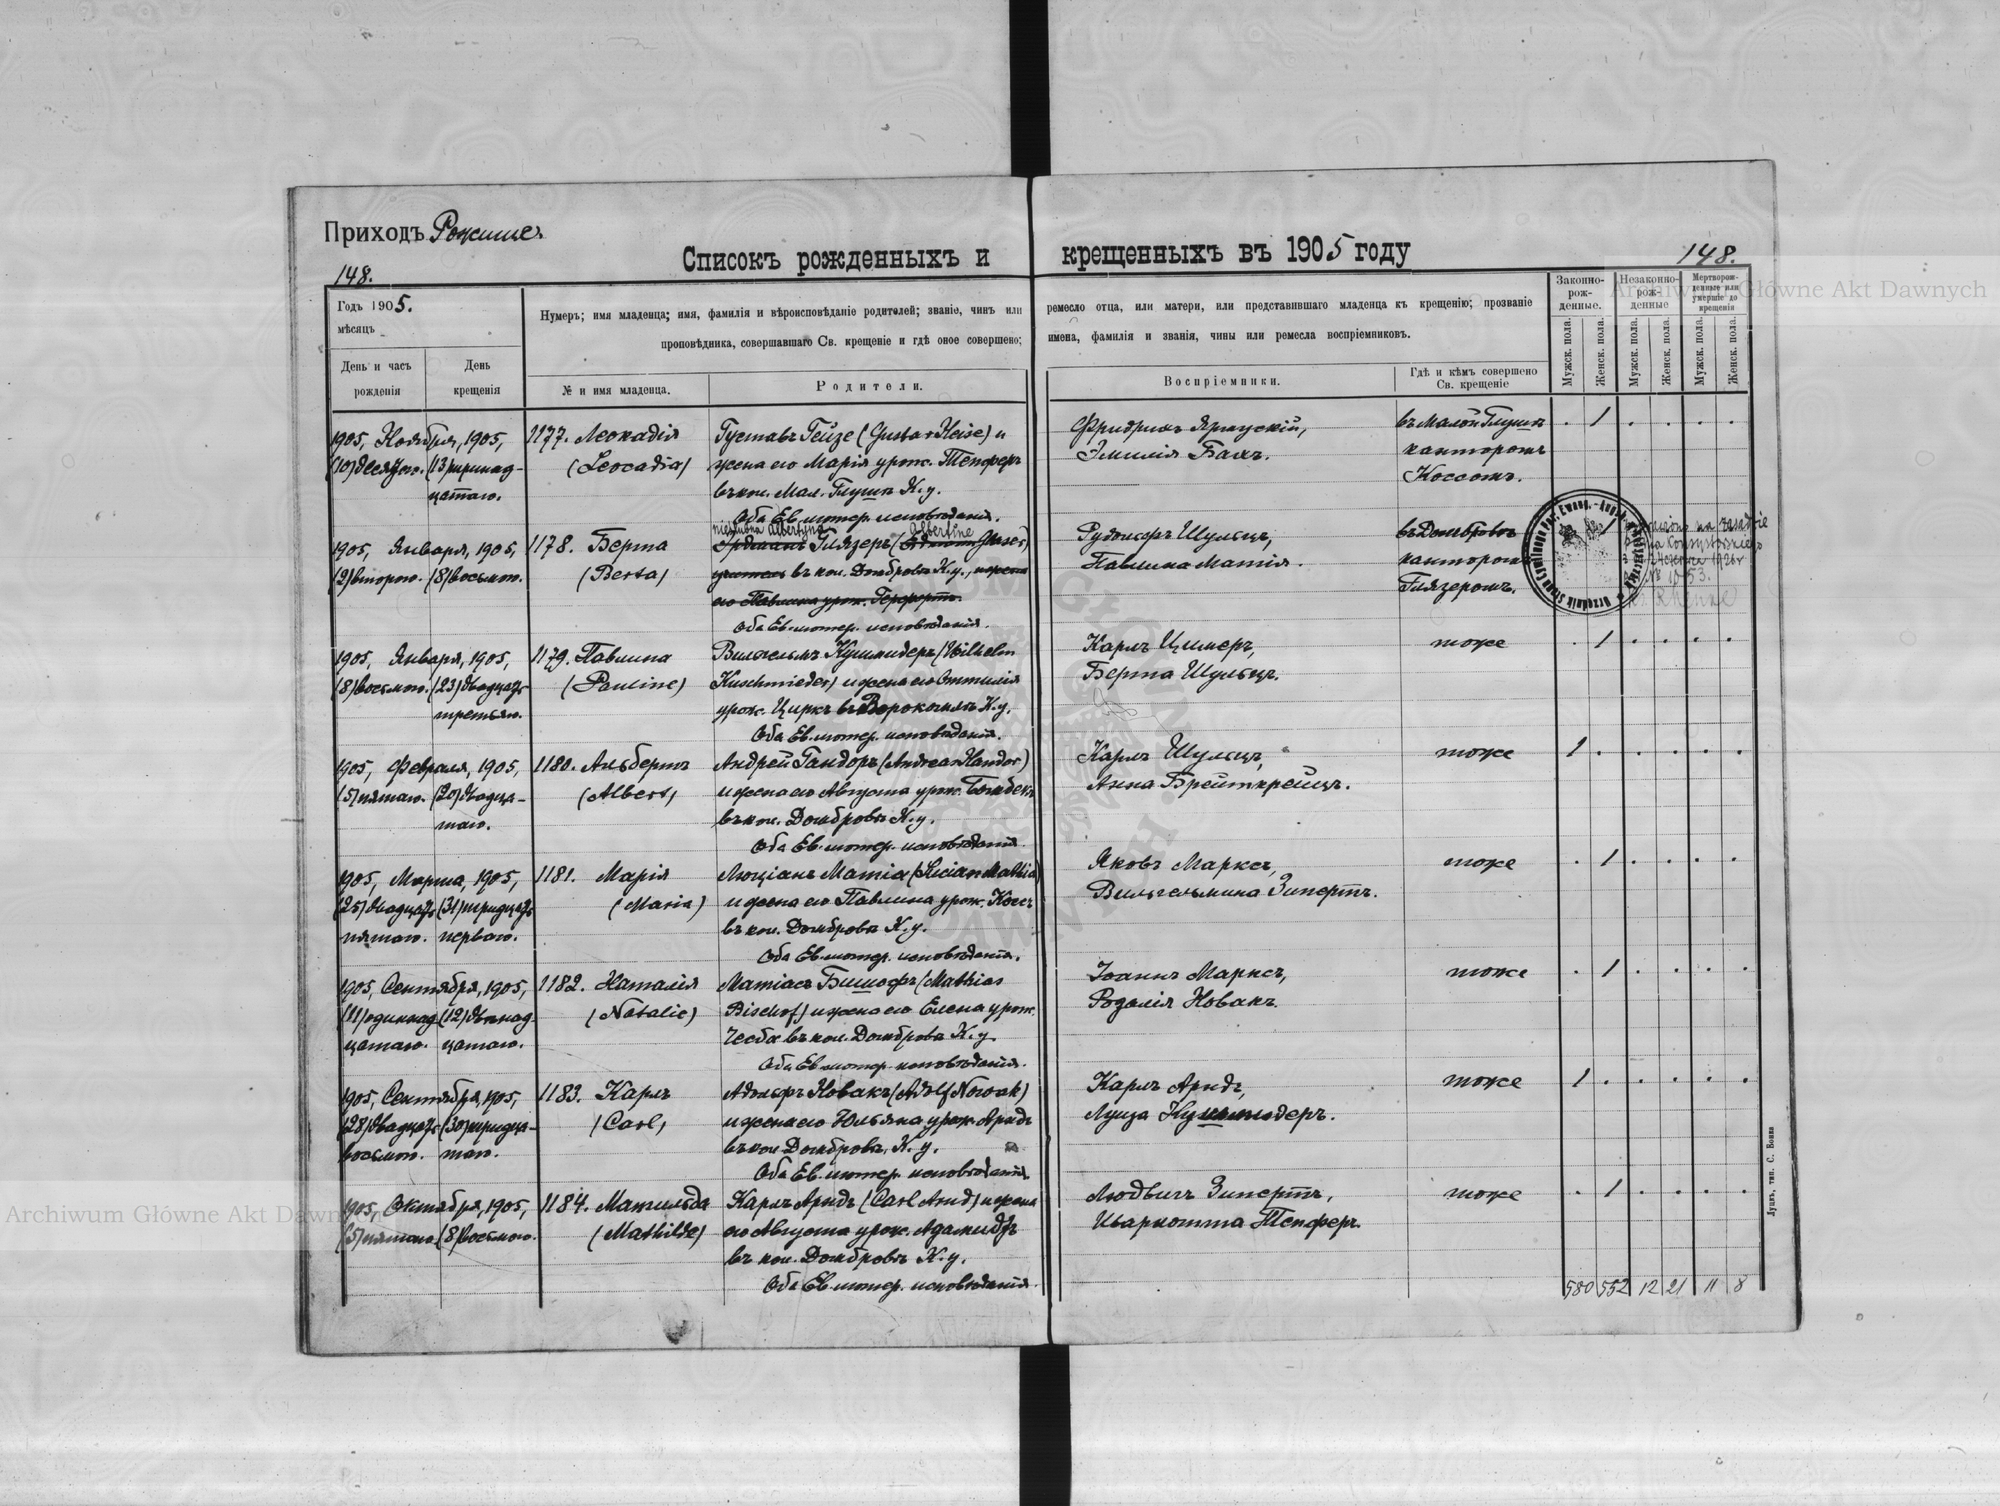 Приходъ Рожище.
Списокъ рожденныхъ и крещенныхъ въ 1905 году
148.
148.
Годъ 1905.
мѣсяцъ
День и часъ рожденія
День крещенія
Нумеръ; имя младенца; имя, фамилія и вѣроисповѣданіе родителей; званіе, чинъ или ремесло отца, или матери, или представившаго младенца къ крещенію; прозваніе
проповѣдника, совершавшаго Св. крещеніе и гдѣ оное совершено; имена, фамилія и званія, чины или ремесла воспріемниковъ.
№ и имя младенца.
Родители.
Воспріемники.
Гдѣ и кѣмъ совершено Св. крещеніе
Законно-рож-денные.
Незаконно-рож-денные
Мертворож-денные или умершіе до крещенія
Мужск. пола.
Женск. пола.
Мужск. пола.
Женск. пола.
Мужск. пола.
Женск. пола.
1905, Ноября, 1905, 1177. Леокадія Густавъ Гейзе (Gustav Heise) и Фридрихъ въ Малой Глушѣ . 1 . . . .
(10) десятаго. (13) тринад- (Leocadia) жена его Марія урож. Тепферъ Эмилія Бахъ. канторомъ
цатаго. въ кол. Мал. Глушѣ К. у. Коссомъ.
Оба Ев. лютер. исповѣданія.
niezamężna Albertyna Albertine
1905, Января, 1905, 1178. Берта Глязеръ ( Glaser) Рудольфъ Шульцъ, въ Домбровѣ
(2) второго. (8) восьмого. (Berta) учитель въ кол. Домброва К. у., и жена Павлина Матія. канторомъ
его Павлина урож. Глязеромъ.
Оба Ев. лютер. исповѣданія.
1905, Января, 1905, 1179. Павлина Вильгельмъ Кушмидеръ (Wilhelm Карлъ Цимеръ, тоже . 1 . . . .
(8) восьмого. (23) двадцать (Pauline) Kuschmieder) и жена его Оттилія Берта Шульцъ.
третьяго. урож. Циркъ въ К. у.
Оба Ев. лютер. исповѣданія.
1905, Февраля, 1905, 1180. Альбертъ Андрей Гандоръ (Andreas Handor) Карлъ Шульцъ, тоже 1 . . . . .
(5) пятаго. (20) двадца- (Albert) и жена его Августа урож. Анна Брейткрейцъ.
таго. въ кол. Домбровѣ К. у.
Оба Ев. лютер. исповѣданія
1905, Марта, 1905, 1181. Марія Люціанъ Матіа (Lucian Mathia) Яковъ Марксъ, тоже . 1 . . . .
(25) двадцать (31) тридцать (Maria) и жена его Павлина урож. Вильгельмина Зипертъ.
пятаго. перваго. въ кол. Домбровѣ К. у.
Оба Ев. лютер. исповѣданія.
1905, Сентября, 1905, 1182. Наталія Матіасъ Бишофъ (Mathias Іоаннъ Марксъ, тоже . 1 . . . .
(11) одиннад- (12) двѣнад- (Natalie) Bischof) и жена его Елена урож. Розалія Новакъ.
цатаго. цатаго. въ кол. Домбровѣ К. у.
Оба Ев. лютер. исповѣданія.
1905, Сентября, 1905, 1183. Карлъ Адольфъ Новакъ (Adolf Nowak) Карлъ Арндъ, тоже 1 . . . . .
(28) двадцать (30) тридца- (Carl) и жена его Юльяна урож. Арндъ Луиза Кушмидеръ.
восьмого. таго. въ кол. Домбровѣ, К. у.
Оба Ев. лютер. исповѣданія
1905, Октября, 1905, 1184. Матильда Карлъ Арндъ (Carl Arnd) и жена Людвигъ Зипертъ, тоже . 1 . . . .
(5) пятаго (8) восьмого. (Mathilde) его Августа урож. Шарлотта Тепферъ.
въ кол. Домбровѣ К. у.
Оба Ев. лютер. исповѣданія.
580 552 12 21 11 8
Луцкъ, тип. С. Бонка
Archiwum Główne Akt Dawnych
Archiwum Główne Akt Dawnych